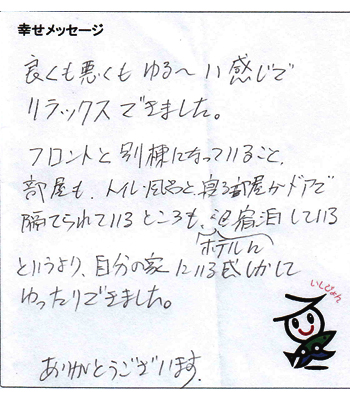 幸せメッセージ
良くも悪くもゆる〜い感じで
リラックスできました。
フロントと別棟になっていること、
部屋も、トイレ・風呂と、寝る部屋がドアで
隔てられているところも、宿泊している
ホテルに
というより、自分の家にいる感じがして
ゆったりできました。
ありがとうございます。